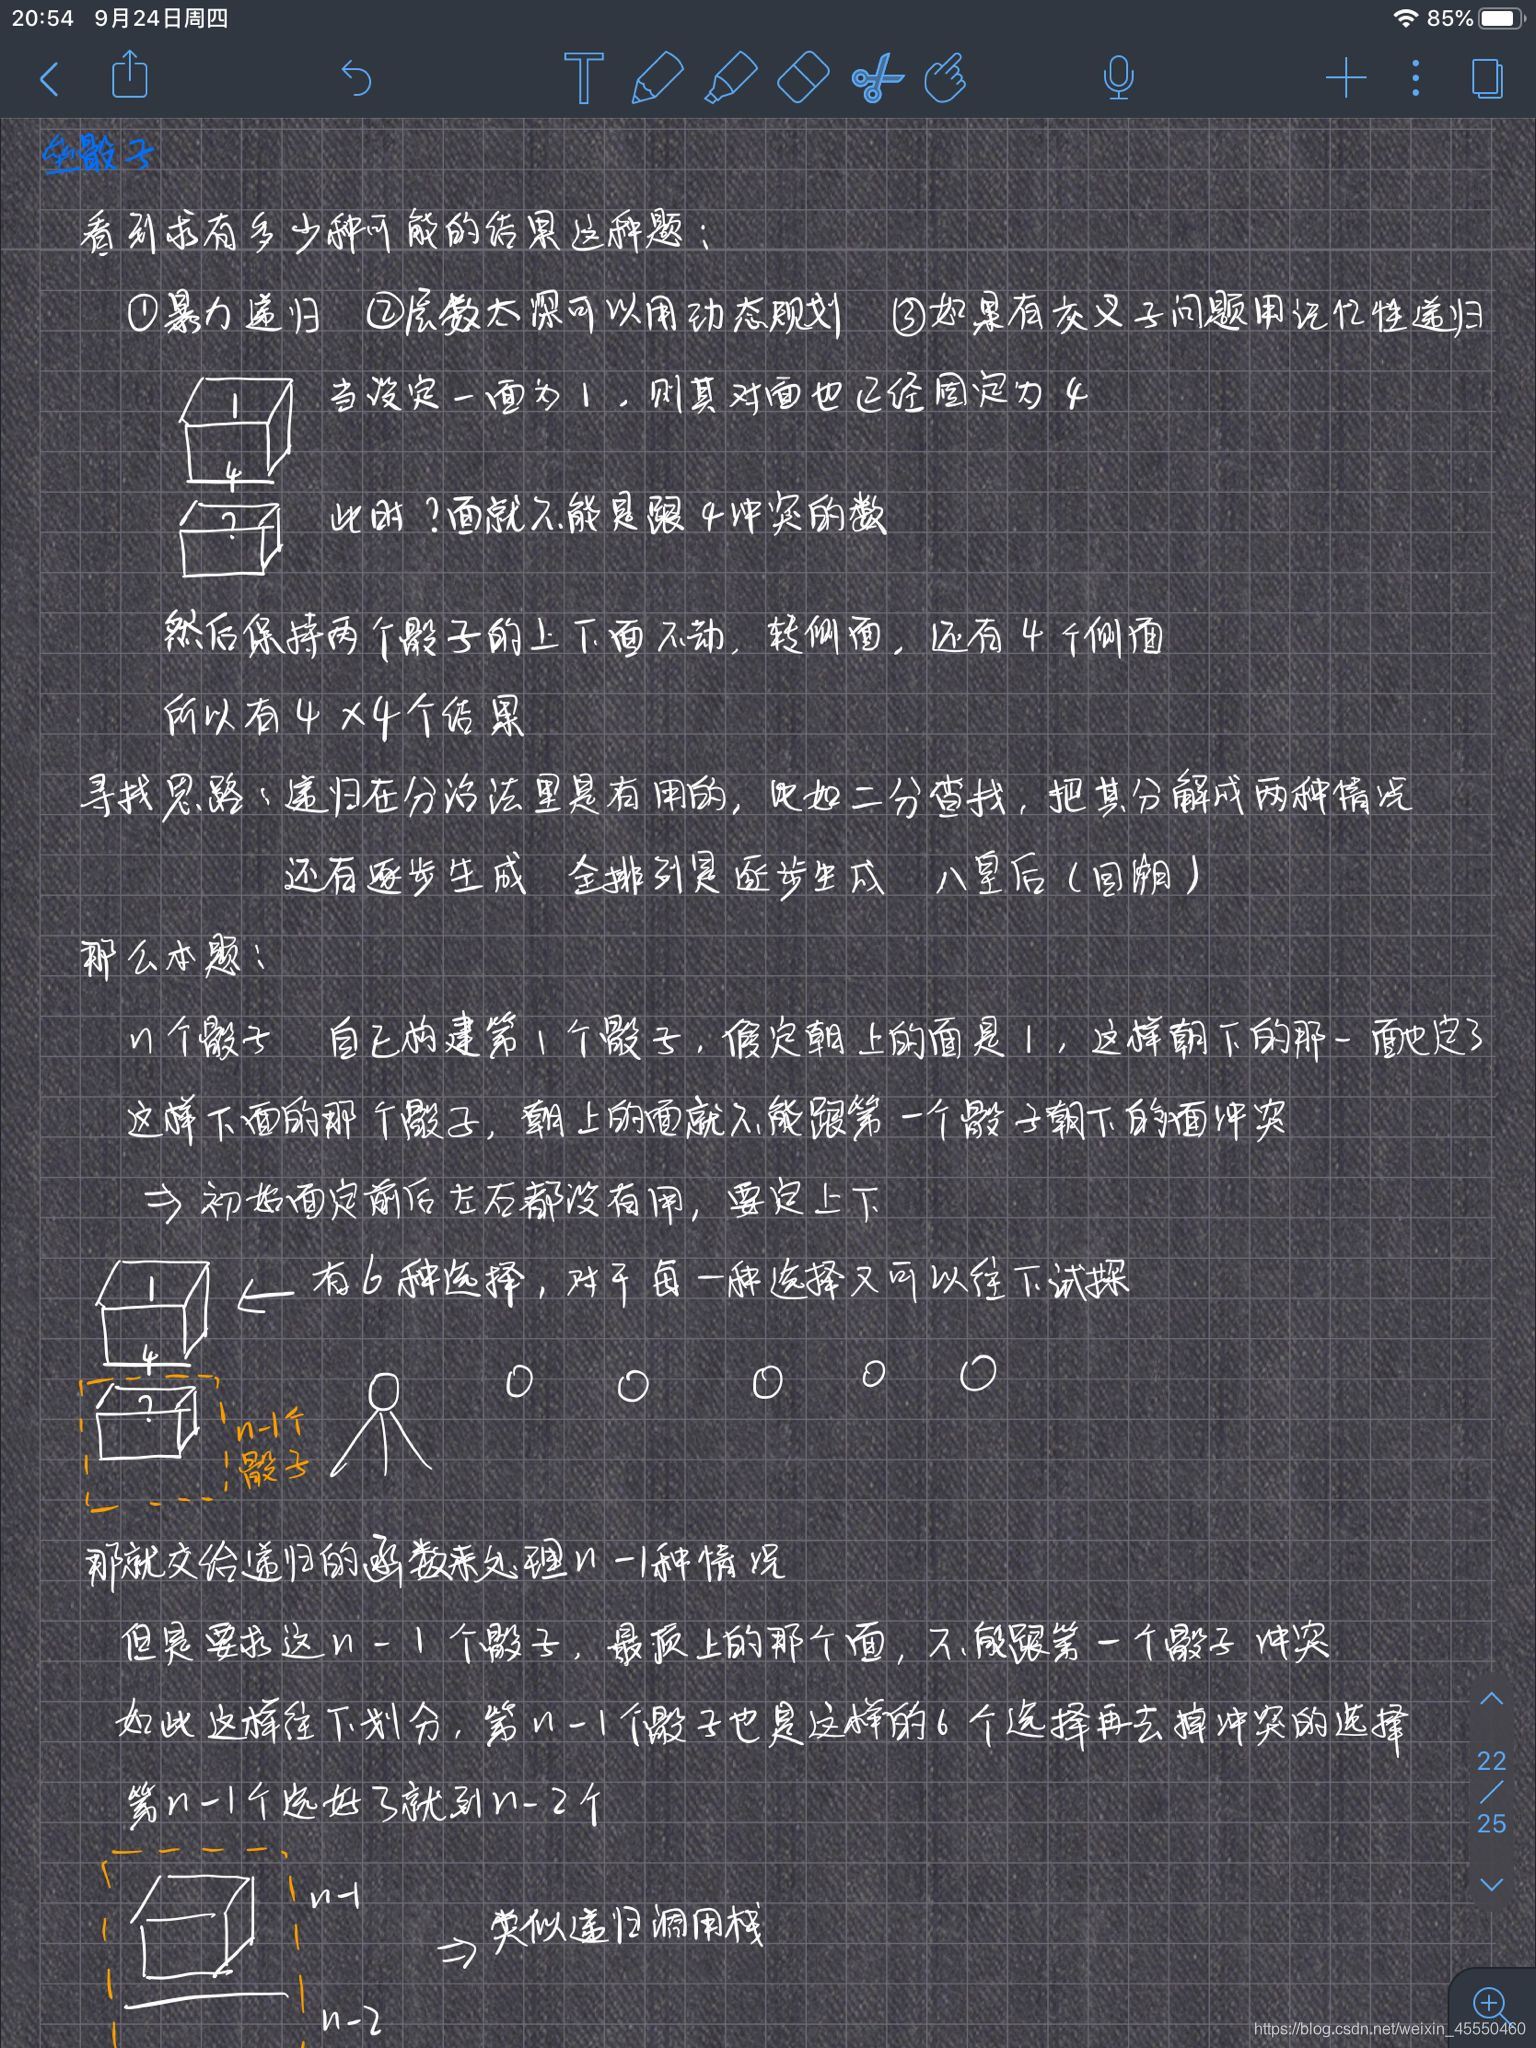 20:54 9月24日周四
85%
垒骰子
看到求有多少种可能的结果这种题：
①暴力递归 ②层数太深可以用动态规划 ③如果有交叉子问题用记忆性递归
1
当设定一面为1，则其对面也已经固定为4
4
?
此时?面就不能是跟4冲突的数
然后保持两个骰子的上下面不动，转侧面，还有4个侧面
所以有4×4个结果
寻找思路：递归在分治法里是有用的，比如二分查找，把其分解成两种情况
还有逐步生成 全排列是逐步生成 八皇后（回溯）
那么本题：
n个骰子 自己构建第1个骰子，假定朝上的面是1，这样朝下的那一面也定了
这样下面的那个骰子，朝上的面就不能跟第一个骰子朝下的面冲突
⇒ 初始面定前后左右都没有用，要定上下
1
← 有6种选择，对于每一种选择又可以往下试探
4
?
n-1个
骰子
那就交给递归的函数来处理n-1种情况
但是要求这n-1个骰子，最顶上的那个面，不能跟第一个骰子冲突
如此这样往下划分，第n-1个骰子也是这样的6个选择再去掉冲突的选择
第n-1个选好了就到n-2个
n-1
⇒ 类似递归调用栈
n-2
22
/
25
https://blog.csdn.net/weixin_45550460